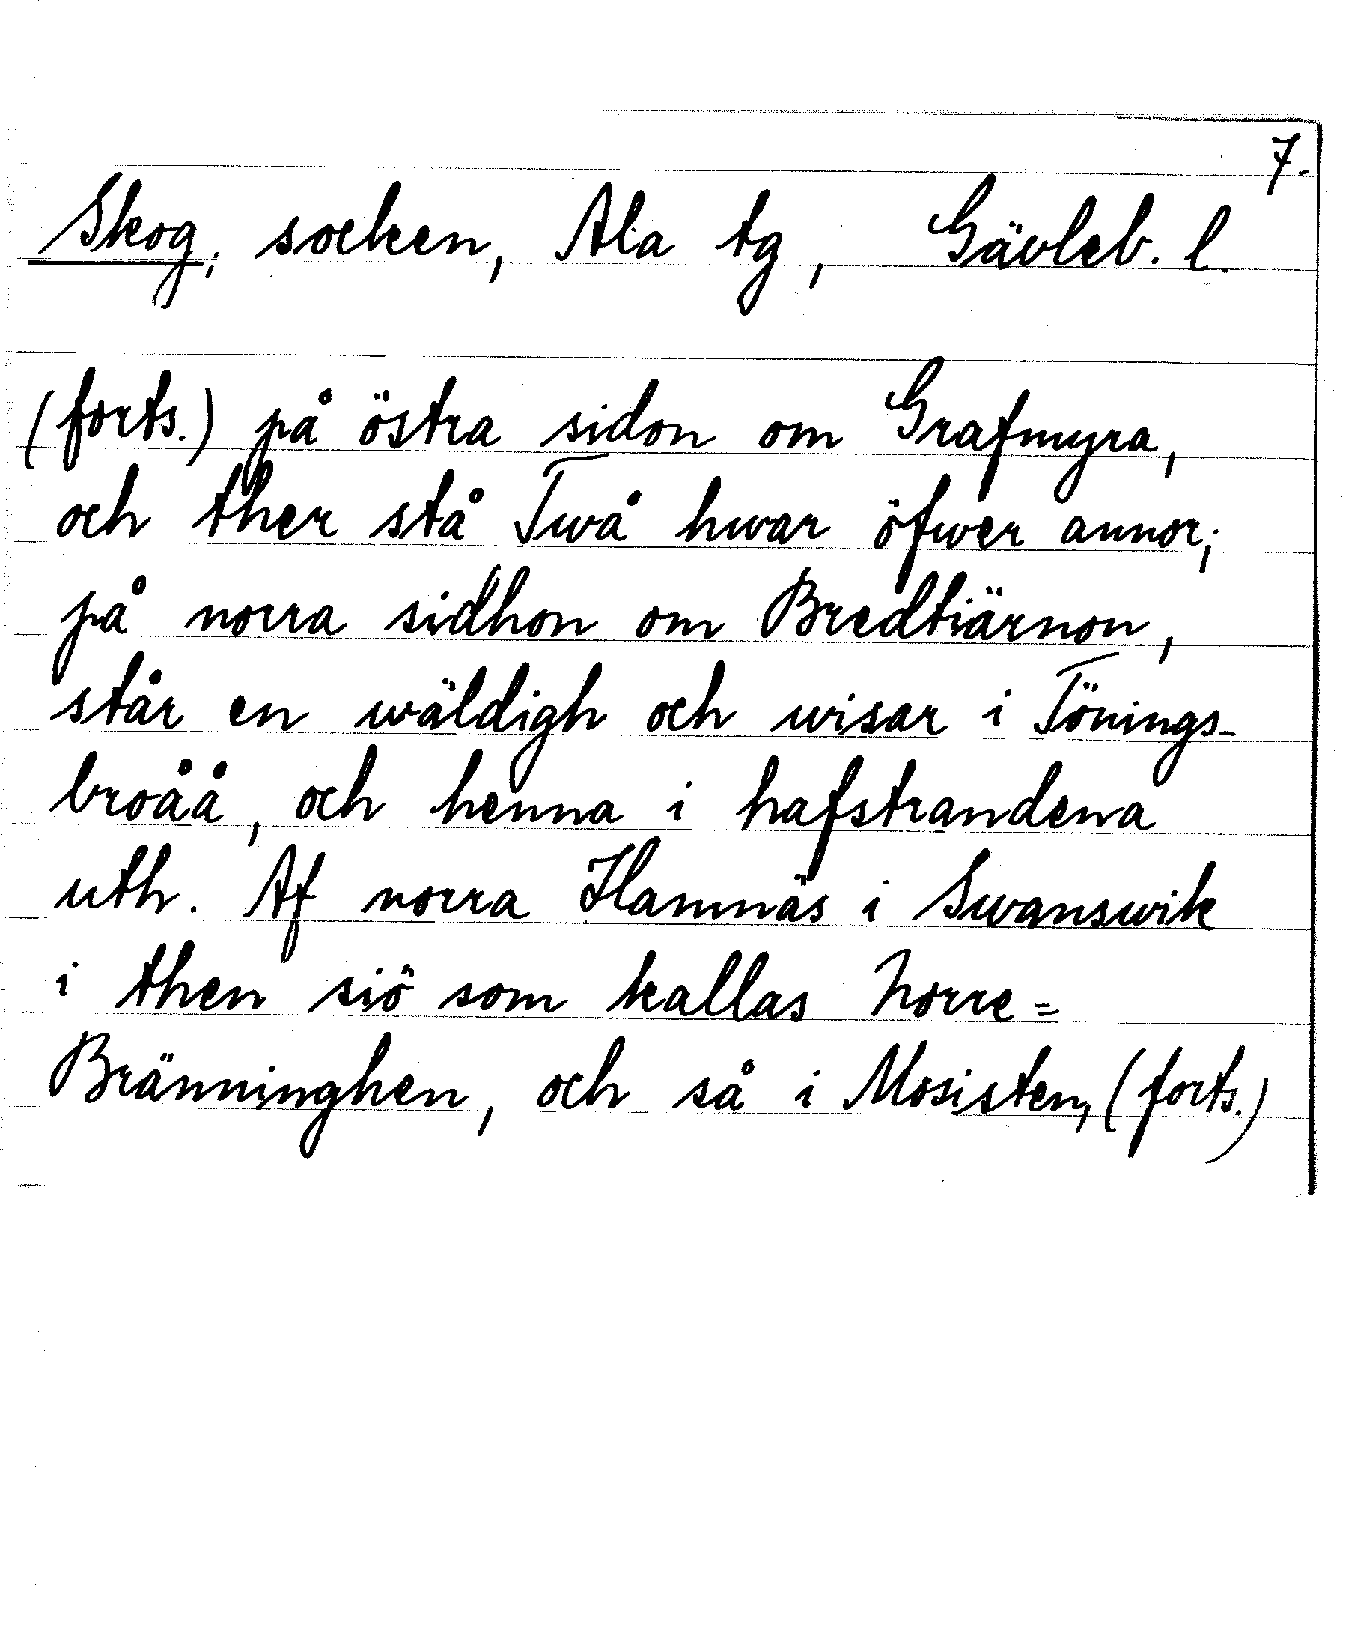 7.
Skog, socken, Ala tg, Gävleb. l.
(forts.) på östra sidon om Grafmyra,
och ther stå Twå hwar öfwer annor;
på norra sidhon om Bredtiärnon,
står en wäldigh och wisar i Tönings-
broåå, och henna i hafstrandena
uth. Af norra Hamnäs i Swanswik
i then siö som kallas Norre=
Bränninghen, och så i Mosisten, (forts.)